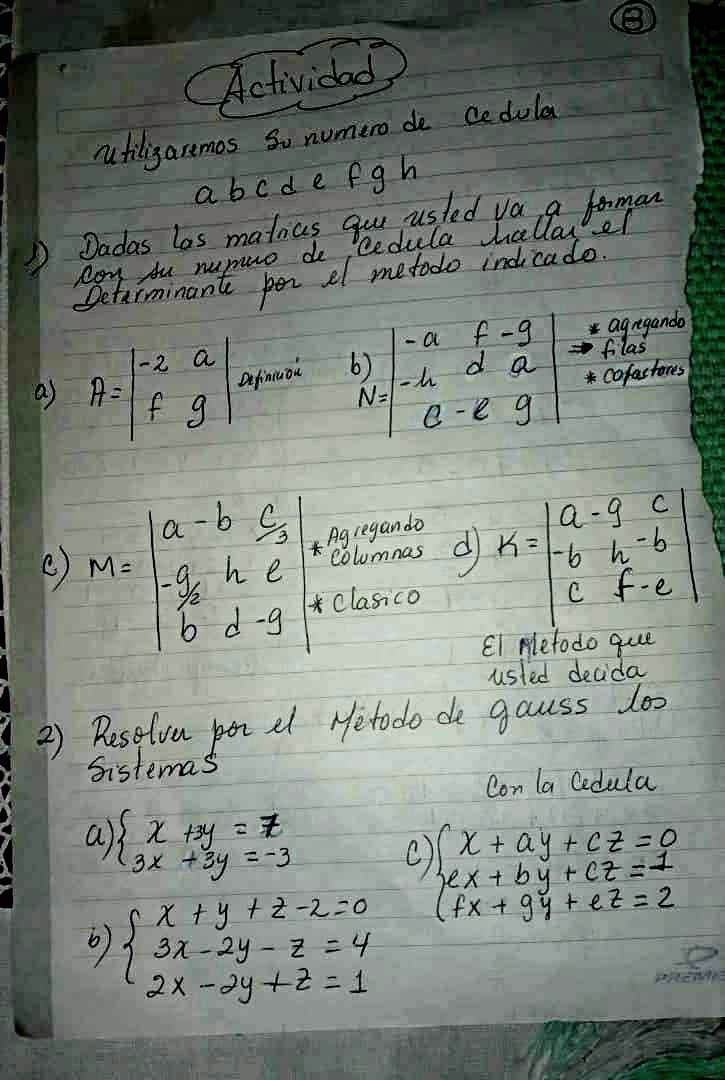 B
Actividad
utilizaremos su numero de cedula
a b c d e f g h
1) Dadas las matrices que usted va a formar
con su numero de cedula hallar el
Determinante por el metodo indicado.
a) A= | -2 a | Definición
| f g |
b) N= | -a f -g | * agregando
| -h d a | ⇒ filas
| c -e g | * cofactores
c) M= | a -b c/3 | * Agregando columnas
| -g/2 h e |
| b d -g | * Clasico
d) K= | a -g c |
| -b h -b |
| c f -e |
El Metodo que
usted decida
2) Resolver por el Método de gauss los
Sistemas
Con la Cedula
a) { x +3y = 7
3x +3y = -3
b) { x + y + z -2 = 0
3x - 2y - z = 4
2x - 2y + z = 1
c) { x + ay + cz = 0
ex + by + cz = 1
fx + gy + ez = 2